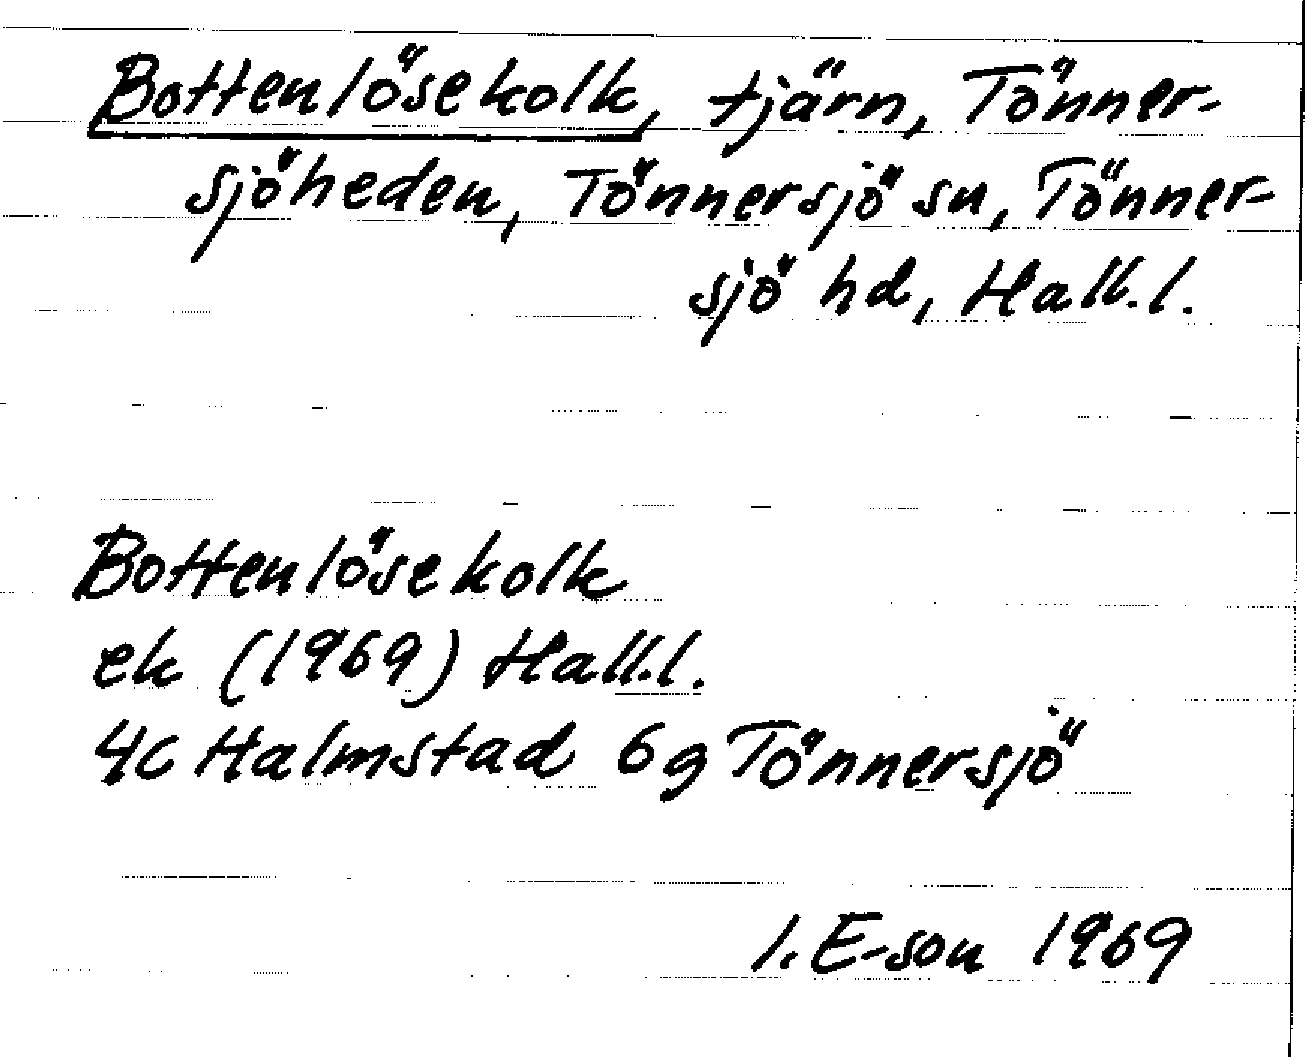 Bottenlösekolk, tjärn, Tönner-
sjöheden, Tönnersjö sn, Tönner-
sjö hd, Hall.l.
Bottenlösekolk
ek (1969) Hall.l.
4C Halmstad 6g Tönnersjö
I. E-son 1969